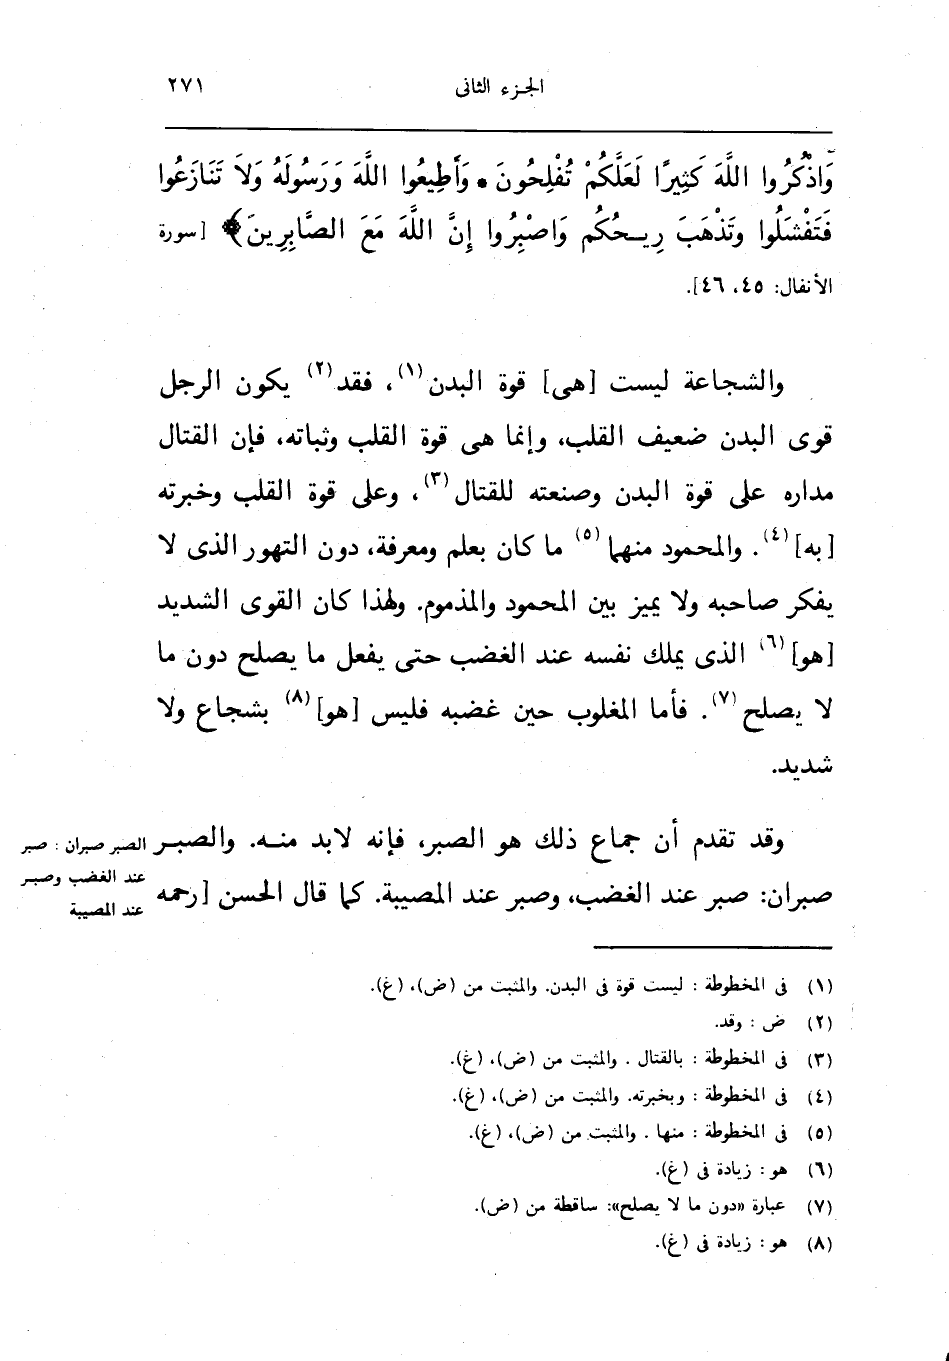 الجزء الثانى ٢٧١
وَاذْكُرُوا اللَّهَ كَثِيرًا لَعَلَّكُمْ تُفْلِحُونَ * وَأَطِيعُوا اللَّهَ وَرَسُولَهُ وَلاَ تَنَازَعُوا
فَتَفْشَلُوا وَتَذْهَبَ رِيحُكُم وَاصْبِرُوا إِنَّ اللَّهَ مَعَ الصَّابِرِينَ﴾ [سورة
الأنفال: ٤٥، ٤٦].
والشجاعة ليست [هى] قوة البدن(١)، فقد(٢) يكون الرجل
قوى البدن ضعيف القلب، وإنما هى قوة القلب وثباته، فإن القتال
مداره على قوة البدن وصنعته للقتال(٣)، وعلى قوة القلب وخبرته
[به](٤). والمحمود منهما(٥) ما كان بعلم ومعرفة، دون التهور الذى لا
يفكر صاحبه ولا يميز بين المحمود والمذموم. ولهذا كان القوى الشديد
[هو](٦) الذى يملك نفسه عند الغضب حتى يفعل ما يصلح دون ما
لا يصلح(٧). فأما المغلوب حين غضبه فليس [هو](٨) بشجاع ولا
شديد.
وقد تقدم أن جماع ذلك هو الصبر، فإنه لابد منه. والصبر
صبران: صبر عند الغضب، وصبر عند المصيبة. كما قال الحسن [رحمه
الصبر صبران : صبر
عند الغضب وصبر
عند المصيبة
(١) فى المخطوطة : ليست قوة فى البدن. والمثبت من (ض)، (غ).
(٢) ض : وقد.
(٣) فى المخطوطة : بالقتال . والمثبت من (ض)، (غ).
(٤) فى المخطوطة : وبخبرته. والمثبت من (ض)، (غ).
(٥) فى المخطوطة : منها . والمثبت من (ض)، (غ).
(٦) هو : زيادة فى (غ).
(٧) عبارة «دون ما لا يصلح»: ساقطة من (ض).
(٨) هو : زيادة فى (غ).